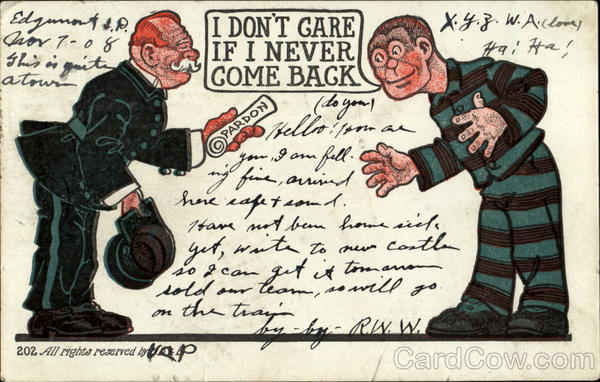 Edgemont S.D.
Nov 7-08
This is quite
a town
I DON'T CARE
IF I NEVER
COME BACK
X.Y.Z. W.A. (love)
Ha! Ha!
PARDON
(do you)
Hello! How are
you, I am feel-
ing fine, arrived
here safe & sound.
Have not been home sick
yet, write to new castle
so I can get it tomorrow
sold our team, so will go
on the train
by-by- R.W.W.
202 All rights reserved by
CardCow.com